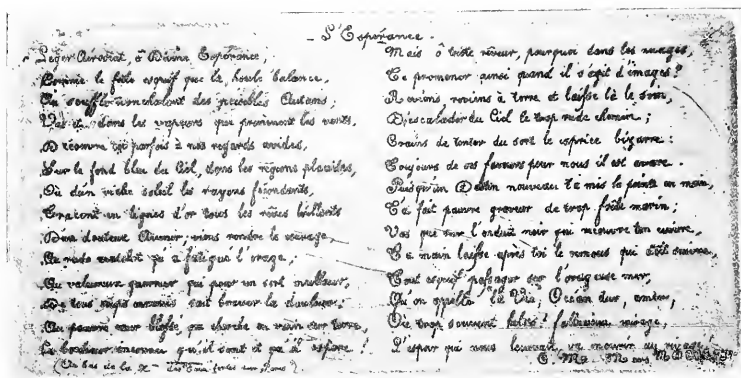 L'Espérance.
Léger Aérostat, ô Divine Espérance,
Comme le frêle esquif que la houle balance,
Au souffle nonchalant des paisibles Autans;
dans les vapeurs que promènent les vents,
parfois à nos regards avides,
Sur le fond bleu du Ciel, dans les régions placides,
Où d'un riche soleil les rayons
en lignes d'or tous les rêves brillants
D'un douteux Avenir viens rendre le courage,
Au rude matelot qu'a fatigué l'orage,
Au valeureux guerrier qui pour un sort meilleur,
De tous sait braver la douleur,
Au pauvre cœur blessé, qui cherche en vain sur terre,
Le bonheur inconnu qu'il sent et qu'il espère!
(Au bas de la X - des Eaux fortes sur Paris)
Mais ô triste rêveur, pourquoi dans les nuages,
Te promener ainsi quand il s'agit d'images?
Reviens, reviens à terre et laisse là le soin,
D'escalader du Ciel le trop rude chemin;
Crains de tenter du sort le caprice bizarre:
Toujours de ses faveurs pour nous il est avare.
Puisqu'un Destin nouveau t'a mis la pointe en main,
T'a fait pauvre graveur de trop frêle
Vas que sur l'enduit noir qui recouvre ton cuivre,
Ta main laisse après toi le remous qui doit suivre,
Tout esquif passager sur l'orageuse mer,
Qu'on appelle "la Vie", Océan dur, amer,
Où trop souvent hélas! fallacieux mirage,
L'espoir qui nous leurrait va mourir au rivage!
C. M.